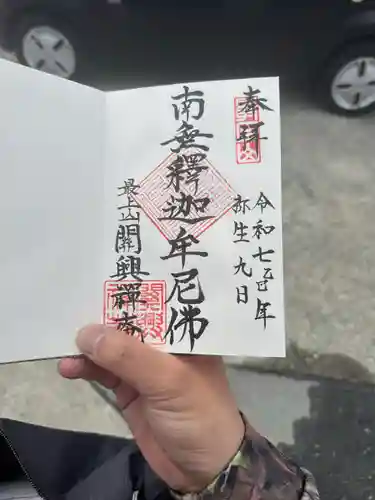 奉拝
令和七乙巳年
弥生九日
南無釋迦牟尼佛
最上山
開興禅寺